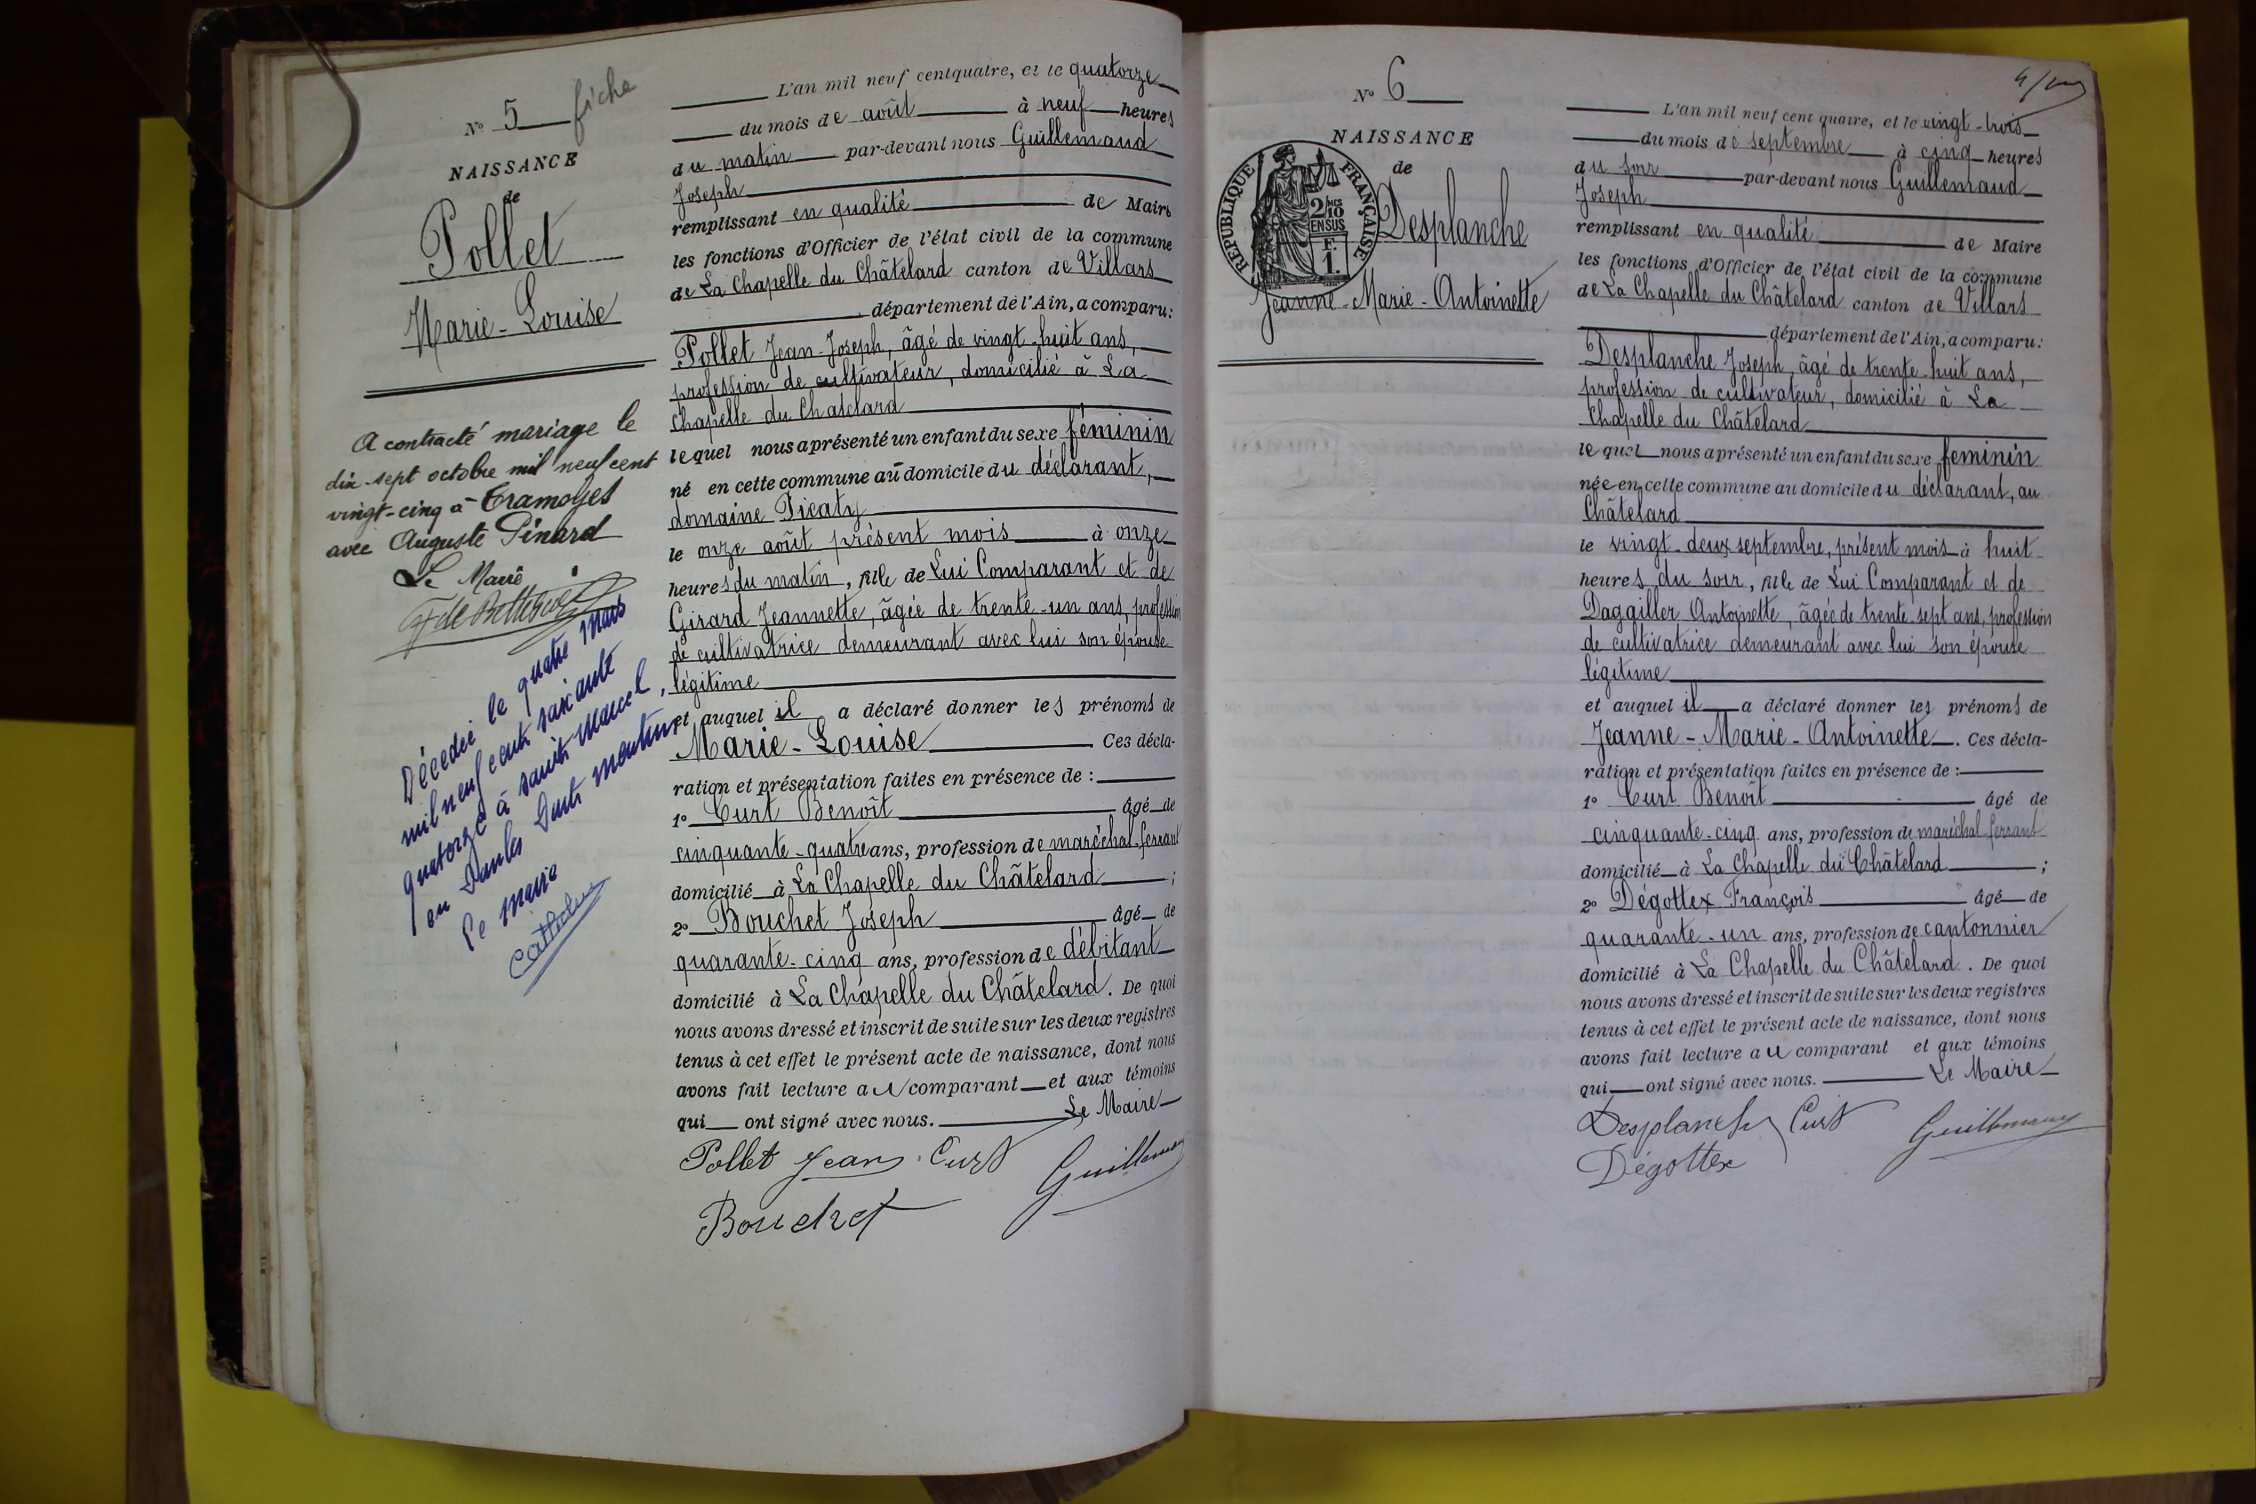 N° 5 fiche
NAISSANCE
de
Pollet
Marie-Louise
A contracté mariage le
dix-sept octobre mil neuf cent
vingt-cinq à Tramoyes
avec Auguste Pinard
Le Maire
Décédée le quatre mars
mil neuf cent soixante
quatorze à Saint Marcel,
en Dombes
Le maire
L'an mil neuf cent quatre, et le quatorze
du mois de août à neuf heures
du matin par-devant nous Guillemaud
Joseph
remplissant en qualité de Maire
les fonctions d'Officier de l'état civil de la commune
de La Chapelle du Châtelard canton de Villars
département de l'Ain, a comparu:
Pollet Jean-Joseph, âgé de vingt-huit ans,
profession de cultivateur, domicilié à La
Chapelle du Chatelard
lequel nous a présenté un enfant du sexe féminin
né en cette commune au domicile du déclarant,
domaine Picaty
le onze août présent mois à onze
heures du matin, fille de Lui Comparant et de
Girard Jeannette, âgée de trente-un ans, profession
de cultivatrice demeurant avec lui son épouse
légitime
et auquel il a déclaré donner les prénoms de
Marie-Louise Ces décla-
ration et présentation faites en présence de :
1° Curt Benoît âgé de
cinquante-quatre ans, profession de maréchal ferrant
domicilié à La Chapelle du Châtelard ;
2° Bouchet Joseph âgé de
quarante-cinq ans, profession de débitant
domicilié à La Chapelle du Châtelard. De quoi
nous avons dressé et inscrit de suite sur les deux registres
tenus à cet effet le présent acte de naissance, dont nous
avons fait lecture au comparant et aux témoins
qui ont signé avec nous. Le Maire
Pollet Jean Curt Guillemaud
Bouchet
N° 6
NAISSANCE
de
REPUBLIQUE FRANÇAISE
2/10
EN SUS
F.
1.
Desplanche
Jeanne-Marie-Antoinette
L'an mil neuf cent quatre, et le vingt-trois
du mois de septembre à cinq heures
du soir par-devant nous Guillemaud
Joseph
remplissant en qualité de Maire
les fonctions d'Officier de l'état civil de la commune
de La Chapelle du Châtelard canton de Villars
département de l'Ain, a comparu:
Desplanche Joseph, âgé de trente-huit ans,
profession de cultivateur, domicilié à La
Chapelle du Châtelard
lequel nous a présenté un enfant du sexe féminin
née en cette commune au domicile du déclarant, au
Châtelard
le vingt-deux septembre, présent mois à huit
heures du soir, fille de Lui Comparant et de
Dagailler Antoinette, âgée de trente sept ans, profession
de cultivatrice demeurant avec lui son épouse
légitime
et auquel il a déclaré donner les prénoms de
Jeanne-Marie-Antoinette. Ces décla-
ration et présentation faites en présence de :
1° Curt Benoit âgé de
cinquante-cinq ans, profession de maréchal ferrant
domicilié à La Chapelle du Châtelard ;
2° Dégottex François âgé de
quarante-un ans, profession de cantonnier
domicilié à La Chapelle du Châtelard. De quoi
nous avons dressé et inscrit de suite sur les deux registres
tenus à cet effet le présent acte de naissance, dont nous
avons fait lecture au comparant et aux témoins
qui ont signé avec nous. Le Maire
Desplanche Curt Guillemaud
Dégottex